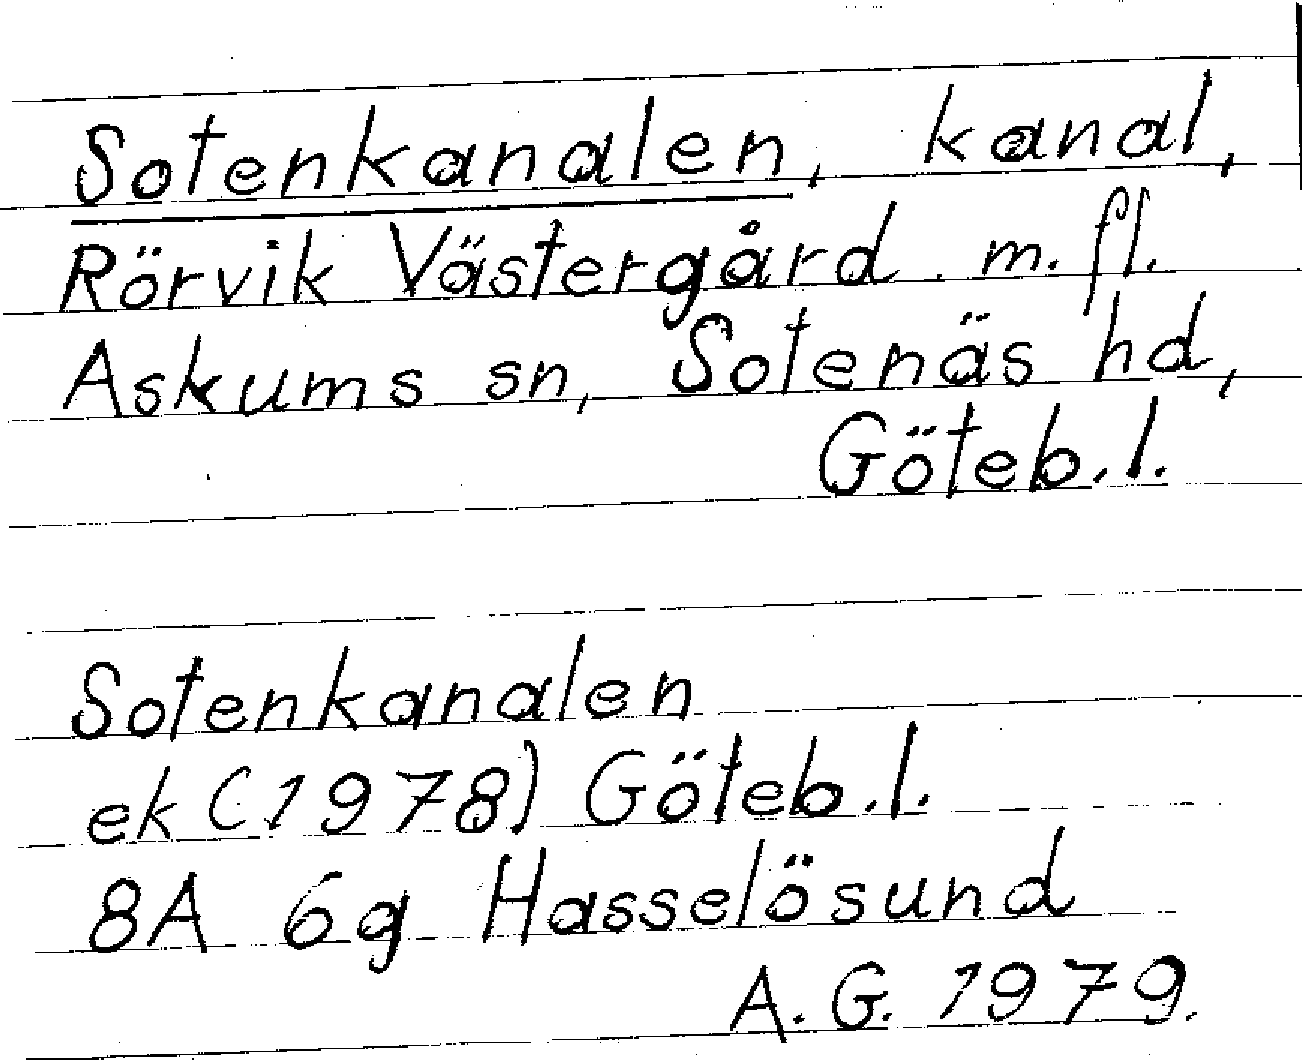 Sotenkanalen, kanal,
Rörvik Västergård m.fl.
Askums sn, Sotenäs hd,
Göteb.l.
Sotenkanalen
ek (1978) Göteb.l.
8A 6g Hasselösund
A.G. 1979.